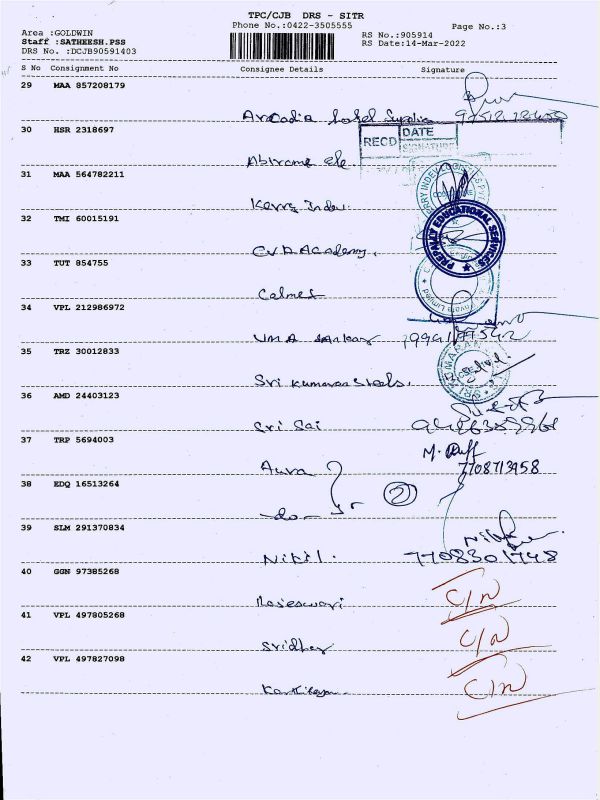 TPC/CJB DRS - SITR
Phone No.:0422-3505555
Page No.:3
Area :GOLDWIN
RS No.:905914
Staff :SATHEESH.PSS
RS Date:14-Mar-2022
DRS No. :DCJB90591403
S No Consignment No Consignee Details Signature
29 MAA 857208179
30 HSR 2318697
RECD DATE
SIGNATURE
Abirame ele
31 MAA 564782211
Kerry Indev
32 TMI 60015191
PREPALLY EDUCATIONAL SERVICES
CVA Academy.
33 TUT 854755
Private Limited
34 VPL 212986972
UMA Sankar
35 TRZ 30012833
Sri Kumaran Steels.
36 AMD 24403123
Sri Sai
37 TRP 5694003
Aura 7708713458
38 EDQ 16513264
-do- 2
39 SLM 291370834
Nikil. 7708301748
40 GGN 97385268
Rajeswari C/N
41 VPL 497805268
Sridhar C/N
42 VPL 497827098
Karthikeyan C/N